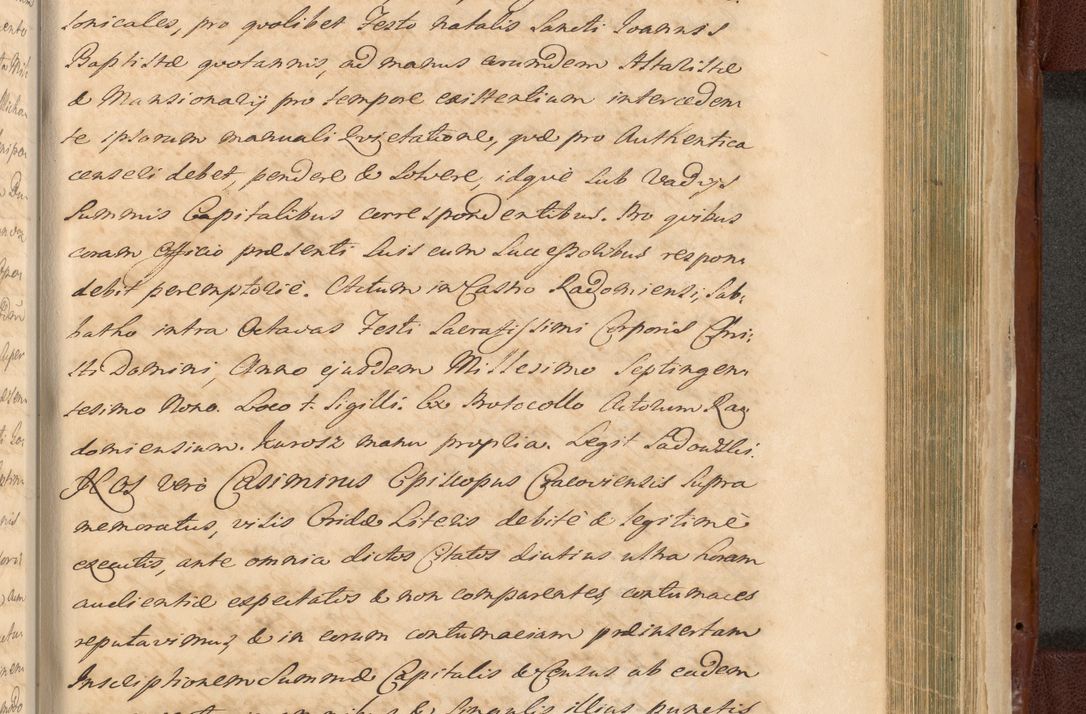 sonicales, pro quolibet Festo natalis Sancti Joannis
Baptistæ quotannis, ad manus earumdem Altaristæ
& Mansionarij pro tempore existentium interceden,
te ipsorum manuali Quietatione, quæ pro Authentica
censeri debet, pendere & solvere, idque sub Vadijs
Summis Capitalibus correspondentibus. Pro quibus
coram Officio præsenti suis cum Successoribus respon,
debit peremptorie. Actum in Castro Radomiensi, Sab,
batho intra Octavas Festi Sacratissimi Corporis Chri,
sti Domini, Anno ejusdem Millesimo Septingen,
tesimo Nono. Loco †. Sigilli. Ex Protocollo Actorum Ra,
domiensium. Kurosz manu propria. Legit Sadowski.
Nos vero Casimirus Episcopus Cracoviensis supra
memoratus, visis Cridæ Literis debitè & legitimè
executis, ante omnia dictos Citatos diutius ultra horam
audientiæ expectatos & non comparentes, contumaces
reputavimus, & in eorum contumaciam præinsertam
Inscriptionem Summæ Capitalis & Census ab eadem
& singulis illius punctis